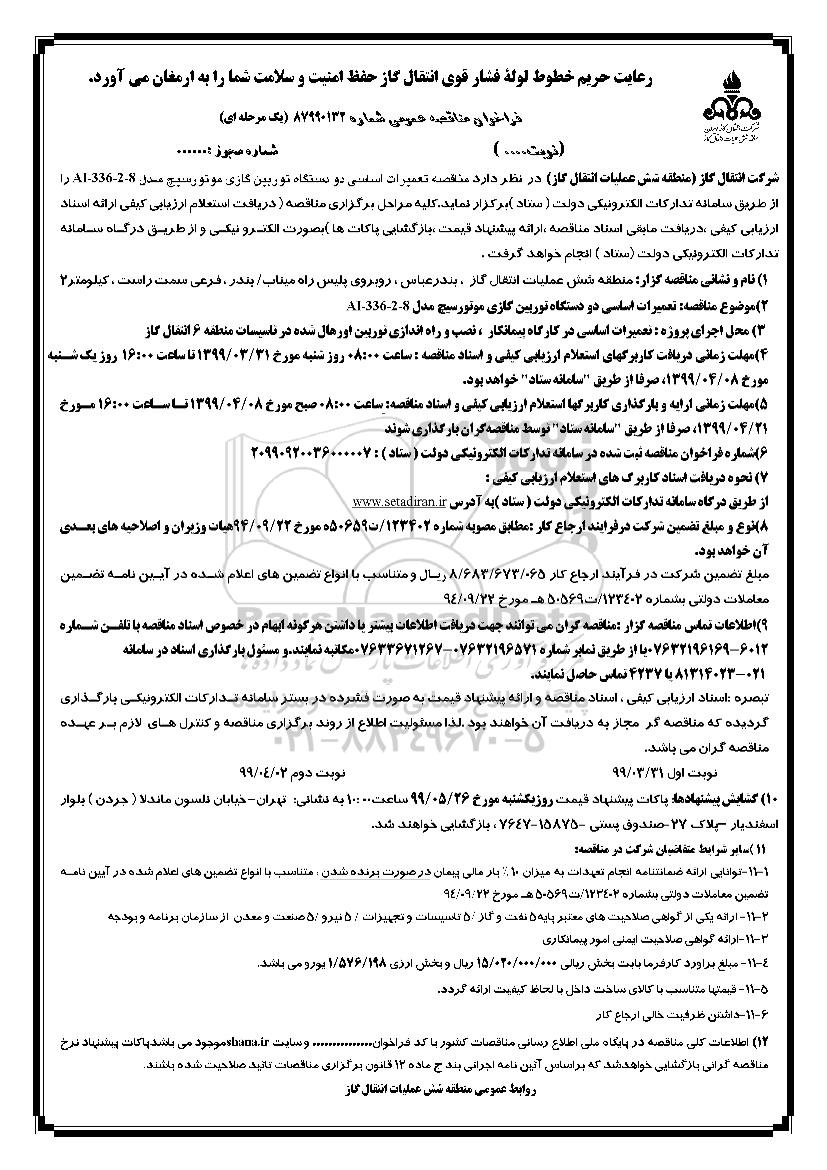 رعایت حریم خطوط لولهٔ فشار قوی انتقال گاز حفظ امنیت و سلامت شما را به ارمغان می آورد.
شرکت انتقال گاز ایران
منطقه شش عملیات انتقال گاز
فراخوان مناقصه عمومی شماره ۸۷۹۹۰۱۳۲ (یک مرحله ای)
(نوبت.....)
شماره مجوز : ......
شرکت انتقال گاز (منطقه شش عملیات انتقال گاز) در نظر دارد مناقصه تعمیرات اساسی دو دستگاه توربین گازی موتورسیچ مدل AI-336-2-8 را
از طریق سامانه تدارکات الکترونیکی دولت ( ستاد )برگزار نماید.کلیه مراحل برگزاری مناقصه ( دریافت استعلام ارزیابی کیفی ارائه اسناد
ارزیابی کیفی ،دریافت مابقی اسناد مناقصه ،ارائه پیشنهاد قیمت ،بازگشایی پاکات ها )بصورت الکترونیکی و از طریق درگاه سامانه
تدارکات الکترونیکی دولت (ستاد ) انجام خواهد گرفت .
۱) نام و نشانی مناقصه گزار: منطقه شش عملیات انتقال گاز ، بندرعباس ، روبروی پلیس راه میناب/ بندر ، فرعی سمت راست ، کیلومتر۲
۲)موضوع مناقصه: تعمیرات اساسی دو دستگاه توربین گازی موتورسیچ مدل AI-336-2-8
۳) محل اجرای پروژه : تعمیرات اساسی در کارگاه پیمانکار ، نصب و راه اندازی توربین اورهال شده در تاسیسات منطقه ۶ انتقال گاز
۴)مهلت زمانی دریافت کاربرگهای استعلام ارزیابی کیفی و اسناد مناقصه : ساعت ۰۸:۰۰ روز شنبه مورخ ۱۳۹۹/۰۳/۳۱ تا ساعت ۱۶:۰۰ روز یک شنبه
مورخ ۱۳۹۹/۰۴/۰۸، صرفا از طریق "سامانه ستاد" خواهد بود.
۵)مهلت زمانی ارایه و بارگذاری کاربرگها استعلام ارزیابی کیفی و اسناد مناقصه: ساعت ۰۸:۰۰ صبح مورخ ۱۳۹۹/۰۴/۰۸ تا ساعت ۱۶:۰۰ مورخ
۱۳۹۹/۰۴/۲۱، صرفا از طریق "سامانه ستاد" توسط مناقصه‌گران بارگذاری شوند
۶)شماره فراخوان مناقصه ثبت شده در سامانه تدارکات الکترونیکی دولت ( ستاد ) : ۲۰۹۹۰۹۲۰۰۳۶۰۰۰۰۰۷
۷) نحوه دریافت اسناد کاربرگ های استعلام ارزیابی کیفی :
از طریق درگاه سامانه تدارکات الکترونیکی دولت ( ستاد )به آدرس www.setadiran.ir
۸)نوع و مبلغ تضمین شرکت درفرایند ارجاع کار :مطابق مصوبه شماره ۱۲۳۴۰۲/ت۵۰۶۵۹ه مورخ ۹۴/۰۹/۲۲هیات وزیران و اصلاحیه های بعدی
آن خواهد بود.
مبلغ تضمین شرکت در فرآیند ارجاع کار ۸/۶۸۳/۶۷۳/۰۶۵ ریال و متناسب با انواع تضمین های اعلام شده در آیین نامه تضمین
معاملات دولتی بشماره ۱۲۳۴۰۲/ت۵۰۵۶۹ هـ مورخ ۹۴/۰۹/۲۲
۹)اطلاعات تماس مناقصه گزار :مناقصه گران می توانند جهت دریافت اطلاعات بیشتر یا داشتن هرگونه ابهام در خصوص اسناد مناقصه با تلفن شماره
۶۰۱۲-۰۷۶۳۲۱۹۶۱۶۹یا از طریق نمابر شماره ۰۷۶۳۲۱۹۶۵۷۱-۰۷۶۳۳۶۷۱۲۶۷مکاتبه نمایند.و مسئول بارگذاری اسناد در سامانه
۰۲۱-۸۱۳۱۴۰۲۳ یا ۴۲۳۷ تماس حاصل نمایند.
تبصره :اسناد ارزیابی کیفی ، اسناد مناقصه و ارائه پیشنهاد قیمت به صورت فشرده در بستر سامانه تدارکات الکترونیکی بارگذاری
گردیده که مناقصه گر مجاز به دریافت آن خواهند بود .لذا مسئولیت اطلاع از روند برگزاری مناقصه و کنترل های لازم بر عهده
مناقصه گران می باشد.
نوبت اول ۹۹/۰۳/۳۱
نوبت دوم ۹۹/۰۴/۰۲
۱۰) گشایش پیشنهادها: پاکات پیشنهاد قیمت روزیکشنبه مورخ ۹۹/۰۵/۲۶ ساعت۱۰:۰۰ به نشانی: تهران-خیابان نلسون ماندلا ( جردن ) بلوار
اسفندیار -پلاک ۲۷-صندوق پستی ۱۵۸۷۵-۷۶۴۷ ، بازگشایی خواهند شد.
۱۱ )سایر شرایط متقاضیان شرکت در مناقصه:
۱-۱۱-توانایی ارائه ضمانتنامه انجام تعهدات به میزان ۱۰٪ بار مالی پیمان در صورت برنده شدن ، متناسب با انواع تضمین های اعلام شده در آیین نامه
تضمین معاملات دولتی بشماره ۱۲۳۴۰۲/ت۵۰۵۶۹ هـ مورخ ۹۴/۰۹/۲۲
۲-۱۱- ارائه یکی از گواهی صلاحیت های معتبر پایه۵ نفت و گاز /۵ تاسیسات و تجهیزات / ۵ نیرو /۵ صنعت و معدن از سازمان برنامه و بودجه
۳-۱۱-ارائه گواهی صلاحیت ایمنی امور پیمانکاری
۴-۱۱- مبلغ برآورد کارفرما بابت بخش ریالی ۱۵/۰۲۰/۰۰۰/۰۰۰ ریال و بخش ارزی ۱/۵۷۶/۱۹۸ یورو می باشد.
۵-۱۱- قیمتها متناسب با کالای ساخت داخل با لحاظ کیفیت ارائه گردد.
۶-۱۱-داشتن ظرفیت خالی ارجاع کار
۱۲) اطلاعات کلی مناقصه در پایگاه ملی اطلاع رسانی مناقصات کشور با کد فراخوان............... و سایت shana.irموجود می باشدپاکات پیشنهاد نرخ
مناقصه گرانی بازگشایی خواهدشد که براساس آئین نامه اجرائی بند ج ماده ۱۲ قانون برگزاری مناقصات تائید صلاحیت شده باشند.
روابط عمومی منطقه شش عملیات انتقال گاز
ParsNamadData
۰۲۱-۸۸۳۴۹۶۷۰-۵